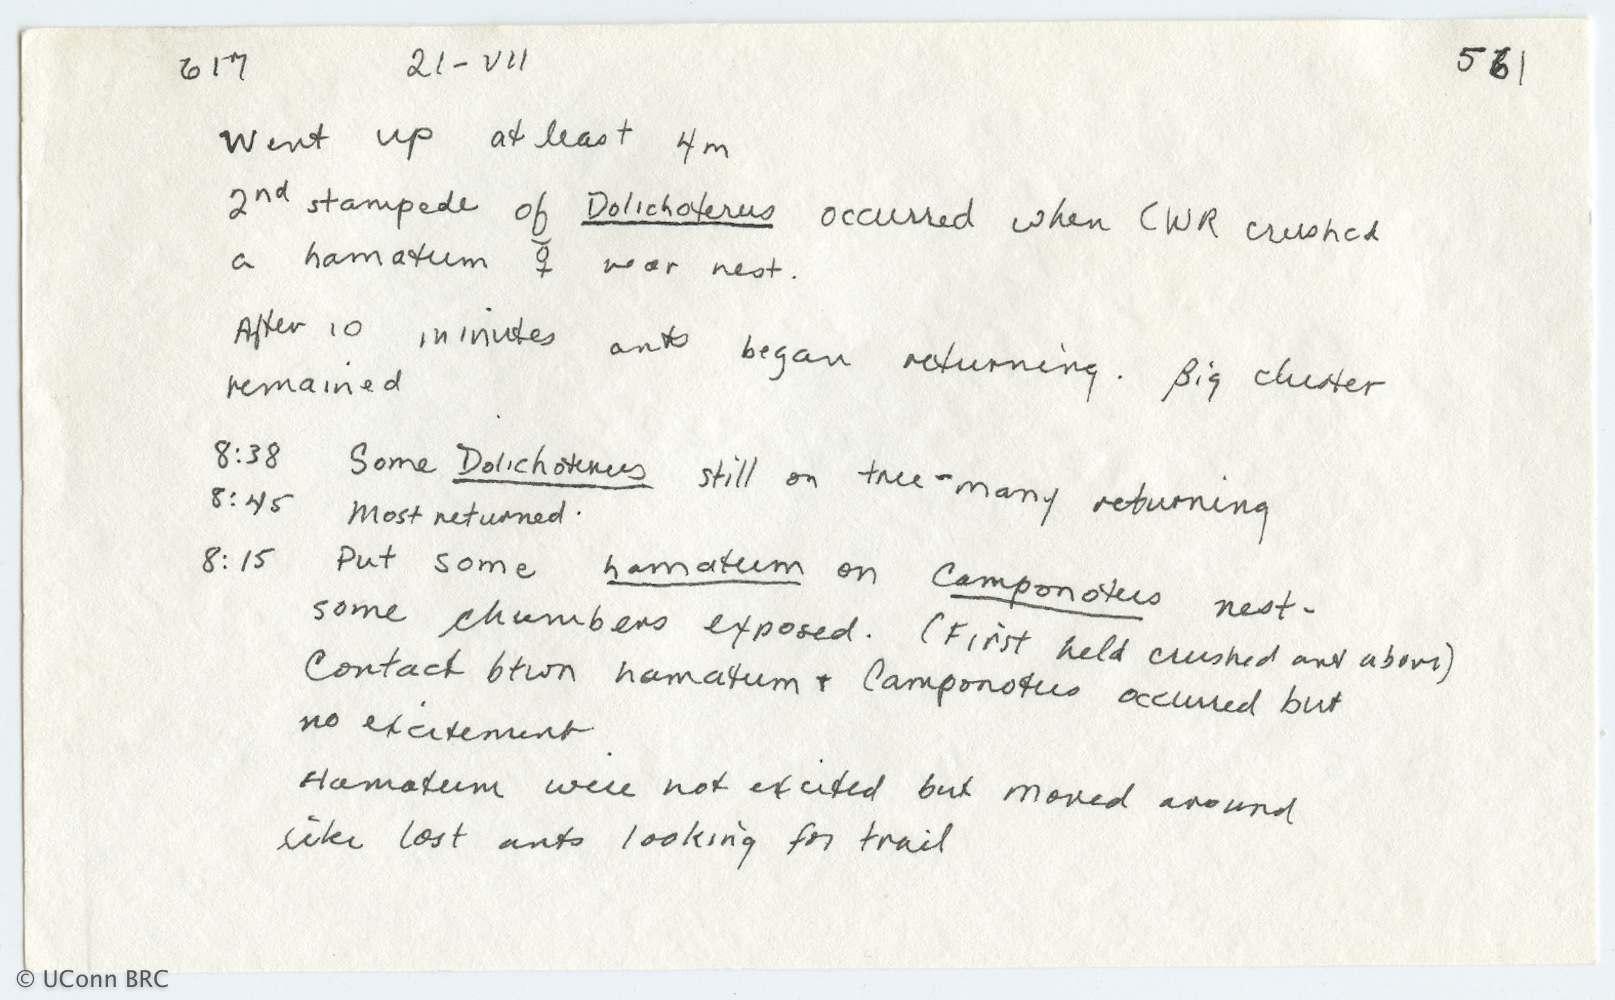 617 21-VII 561
Went up at least 4m
2nd stampede of Dolichoterus occurred when CWR crushed
a hamatum ☿ near nest.
After 10 minutes ants began returning. Big cluster
remained
8:38 Some Dolichoterus still on tree - many returning
8:45 Most returned.
8:15 Put some hamatum on Camponotus nest-
some chumbers exposed. (First held crushed ant above)
Contact btwn hamatum + Camponotus occurred but
no excitement
Hamatum were not excited but moved around
like lost ants looking for trail
© UConn BRC